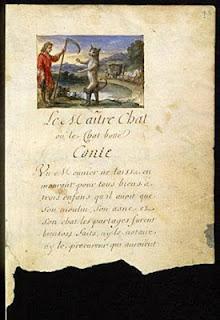 Le Maître Chat
ou le Chat botté
Conte
Un Meunier ne laissa, en
mourant pour tous biens a
trois enfans qu'il avoit que
son moulin, son asne, et
son chat les partages furent
bientost faits, ny le notaire,
ny le procureur qui auroient